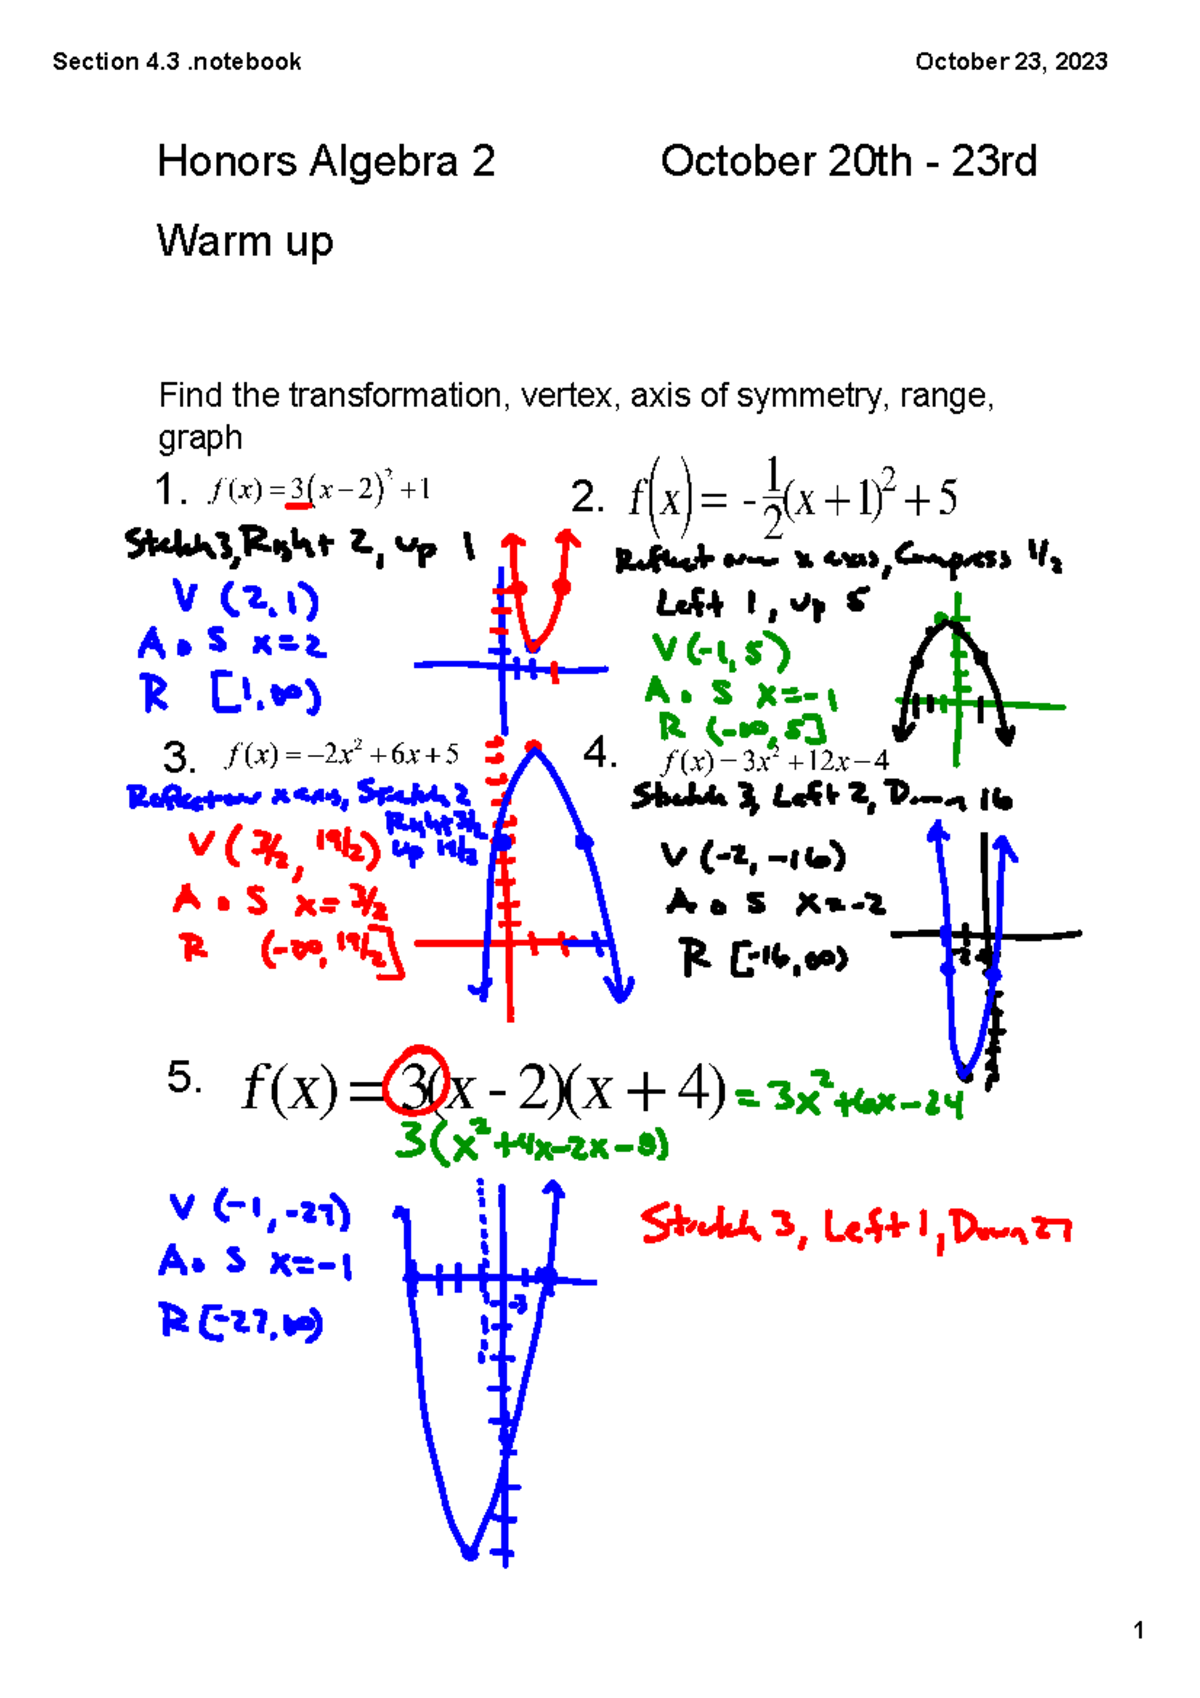 Section 4.3 .notebook
October 23, 2023
Honors Algebra 2
October 20th - 23rd
Warm up
Find the transformation, vertex, axis of symmetry, range,
graph
1. f(x) = 3(x − 2)² + 1
Stretch 3, Right 2, up 1
V (2, 1)
A o S x = 2
R [1, ∞)
2. f(x) = - 1/2(x + 1)² + 5
Reflect over x axis, Compress 1/2
Left 1, up 5
V (-1, 5)
A o S x = -1
R (-∞, 5]
3. f(x) = −2x² + 6x + 5
Reflect over x axis, Stretch 2
Right 3/2
up 19/2
V (3/2, 19/2)
A o S x = 3/2
R (-∞, 19/2]
4. f(x) − 3x² + 12x − 4
Stretch 3, Left 2, Down 16
V (-2, -16)
A o S x = -2
R [-16, ∞)
-2
5. f(x) = 3(x - 2)(x + 4) = 3x² + 6x − 24
3(x² + 4x − 2x − 8)
V (-1, -27)
A o S x = -1
R [-27, ∞)
-3
Stretch 3, Left 1, Down 27
1